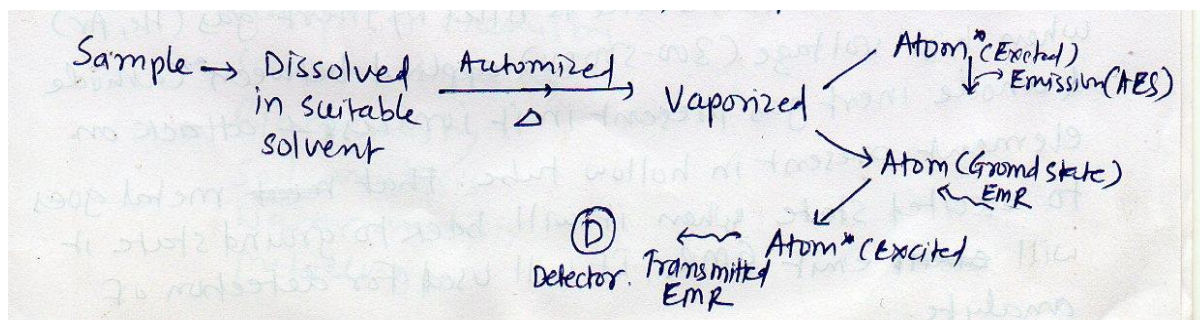 Sample → Dissolved
in suitable
solvent
Automized
Δ
Vaporized
Atom* (Excited)
→ Emission (AES)
Atom (Ground State)
EMR
Atom* (Excited
Transmitted
EMR
D
Detector.